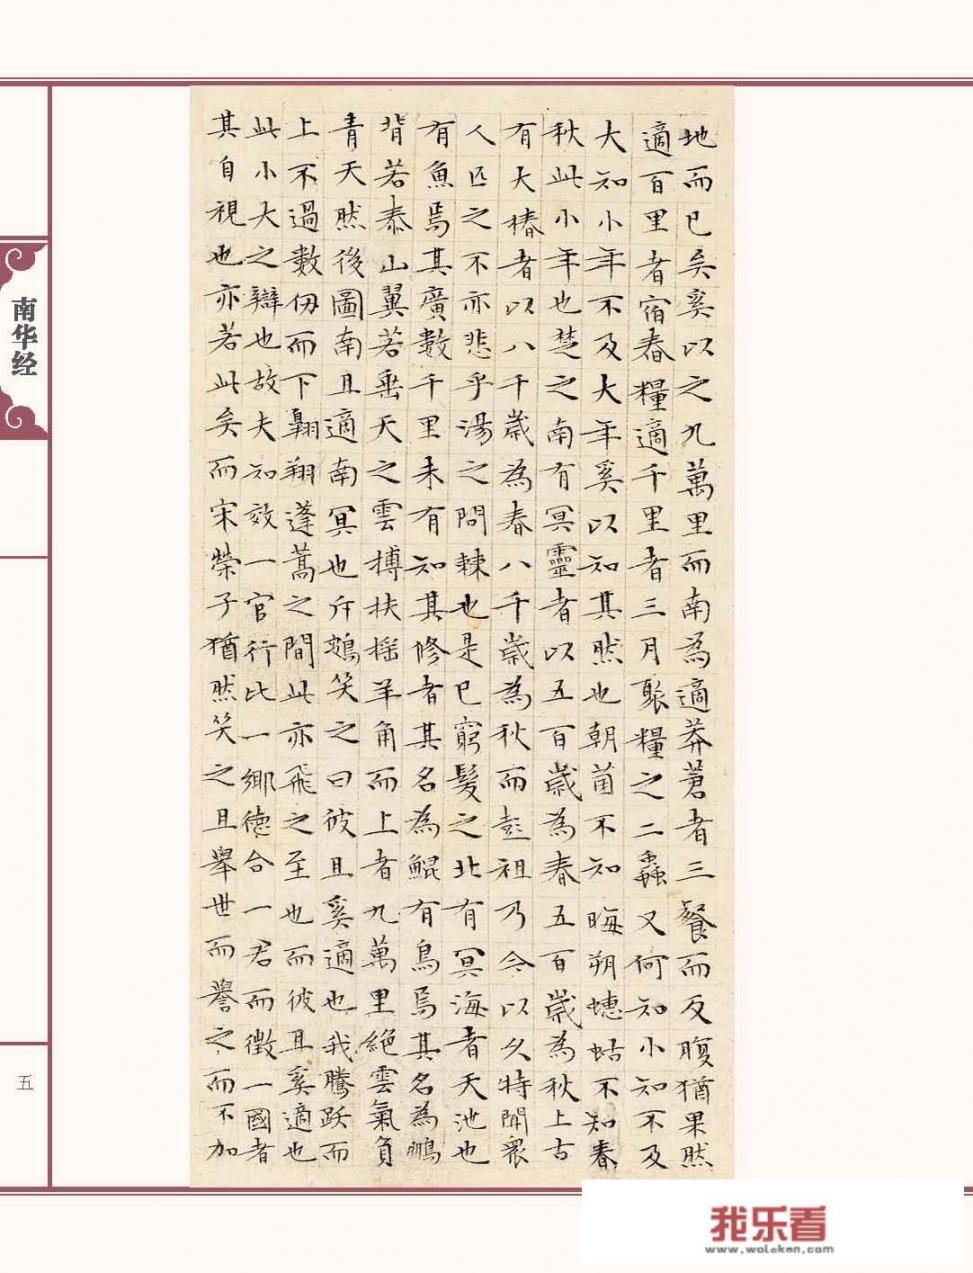 地而已矣奚以之九萬里而南為適莽蒼者三餐而反腹猶果然
適百里者宿舂糧適千里者三月聚糧之二蟲又何知小知不及
大知小年不及大年奚以知其然也朝菌不知晦朔蟪蛄不知春
秋此小年也楚之南有冥靈者以五百歲為春五百歲為秋上古
有大椿者以八千歲為春八千歲為秋而彭祖乃今以久特聞衆
人匹之不亦悲乎湯之問棘也是已窮髮之北有冥海者天池也
有魚焉其廣數千里未有知其修者其名為鯤有鳥焉其名為鵬
背若泰山翼若垂天之雲摶扶搖羊角而上者九萬里絕雲氣負
青天然後圖南且適南冥也斥鴳笑之曰彼且奚適也我騰跃而
上不過數仞而下翱翔蓬蒿之間此亦飛之至也而彼且奚適也
此小大之辯也故夫知效一官行比一鄉德合一君而徵一國者
其自視也亦若此矣而宋榮子猶然笑之且舉世而譽之而不加
南华经
五
我乐看
www.woleken.com